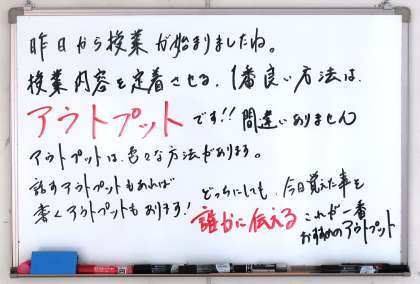 昨日から授業が始まりましたね。
授業内容を定着させる、1番良い方法は、
アウトプットです!! 間違いありません
アウトプットは、色々な方法があります。
話すアウトプットもあれば
書くアウトプットもあります!
どっちにしても、今日覚えた事を
誰かに伝える これが一番
おすすめのアウトプット